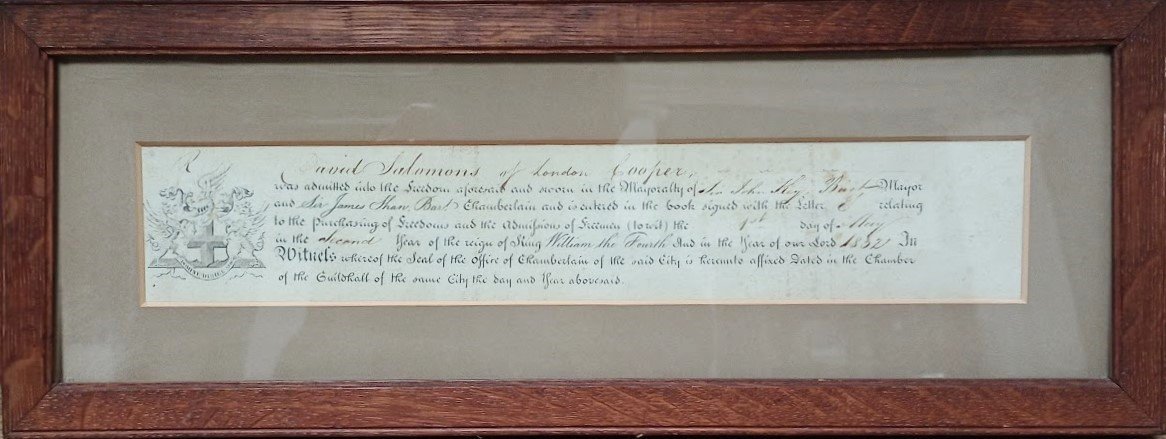 R
David Salomons of London Cooper,
was admitted into the Freedom aforesaid and sworn in the Mayoralty of Sir John Key Bart Mayor
and Sir James Shaw Bart Chamberlain and is entered in the book signed with the Letter relating
to the Purchasing of Freedoms and the Admissions of Freemen (to wit) the 1st day of May
in the second Year of the reign of King William the Fourth And in the Year of our Lord 1832 In
Witness whereof the Seal of the Office of Chamberlain of the said City is hereunto affixed Dated in the Chamber
of the Guildhall of the same City the day and Year abovesaid.
DOMINE DIRIGE